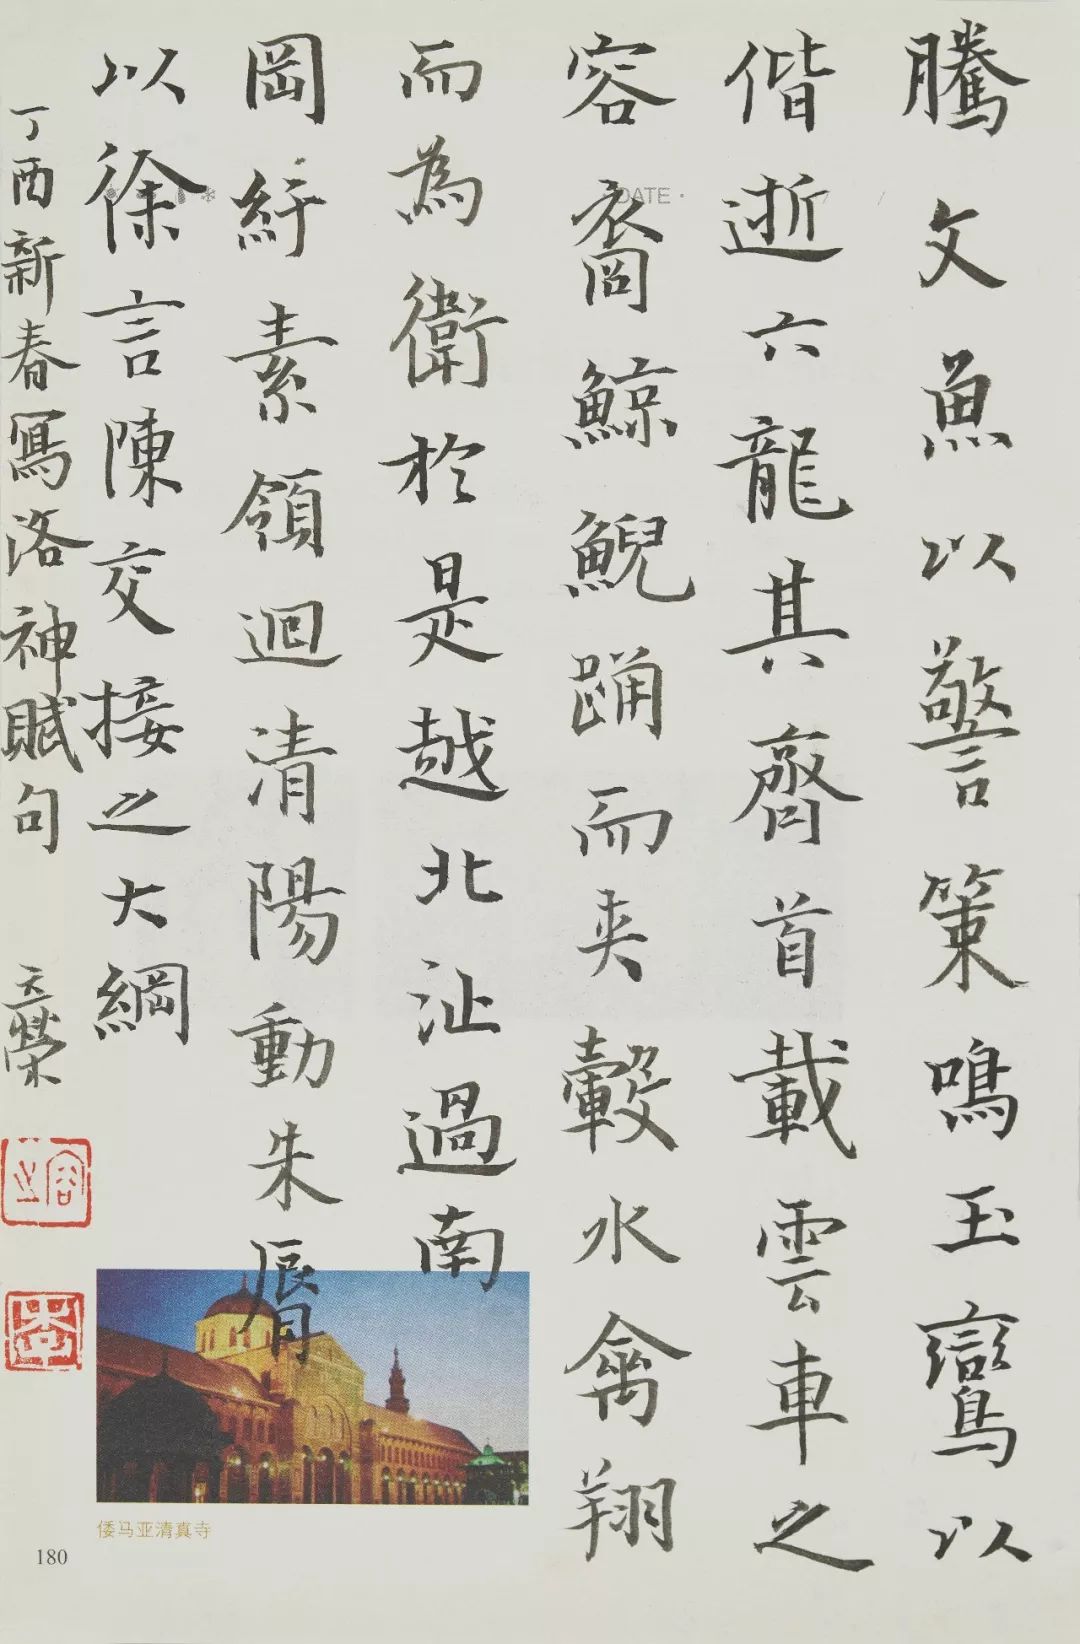 騰文魚以警策鳴玉鸞以
偕逝六龍其齊首載雲車之
容裔鯨鯢踊而夾轂水禽翔
而為衛於是越北沚過南
岡紆素領迴清陽動朱脣
以徐言陳交接之大綱
丁酉新春寫洛神賦句
DATE ·
倭马亚清真寺
180